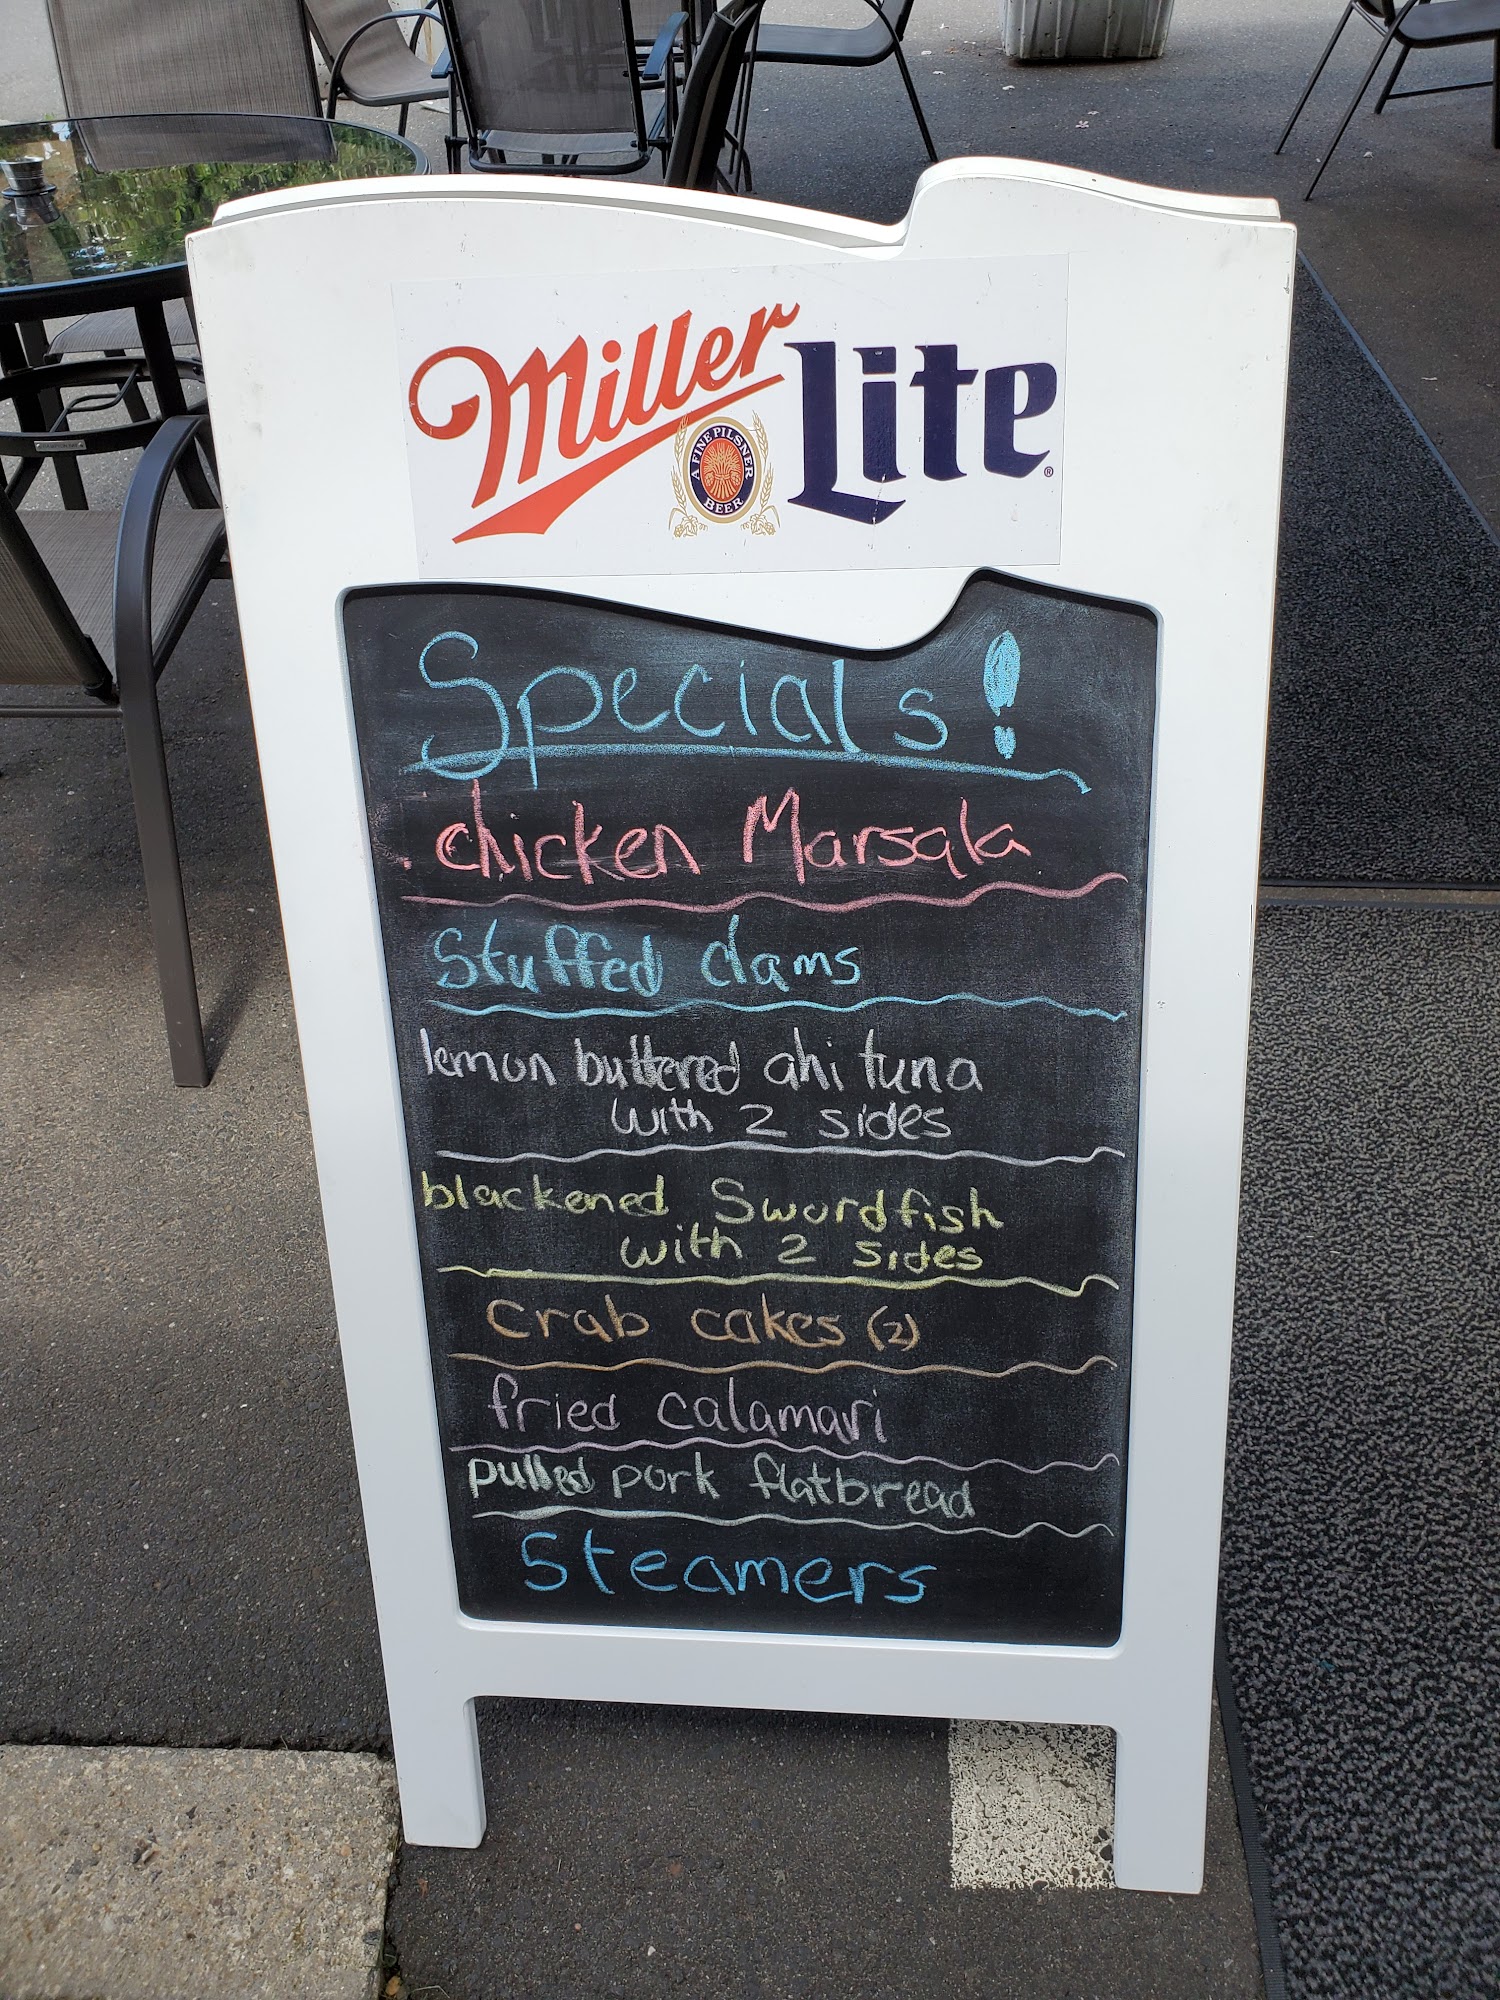 Miller Lite®
A FINE PILSNER
BEER
Specials!
chicken Marsala
Stuffed clams
lemon buttered ahi tuna
with 2 sides
blackened Swordfish
with 2 sides
Crab cakes (2)
fried calamari
pulled pork flatbread
Steamers